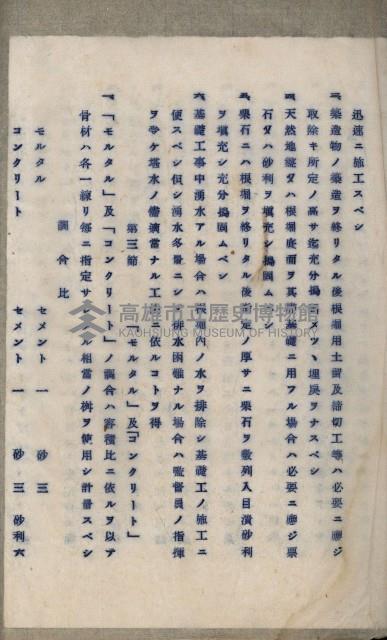 迅速ニ施工スベシ
三、築造物ノ築造ヲ終リタル後根堀用土留及締切工等ハ必要ニ應ジ
取除キ所定ノ高サ迄充分搗固メツヽ埋戻ヲナスベシ
四、天然地盤ヲ根堀底面ヲ其儘基礎ニ用フル場合ハ必要ニ應ジ栗
石又ハ砂利ヲ填充シ搗固ムベシ
五、栗石ニハ根堀ヲ終リタル後所定ノ厚サニ栗石ヲ敷列入目潰砂利
ヲ填充シ充分搗固ムベシ
六、基礎工事中湧水アル場合ハ根堀内ノ水ヲ排除シ基礎工ノ施工ニ
便スベシ但シ湧水多量ニシテ排水困難ナル場合ハ監督員ノ指揮
ヲ受ケ堪水ノ儘適當ナル工法ニ依ルコトヲ得
第三節 「モルタル」及「コンクリート」
一、「モルタル」及「コンクリート」ノ調合ハ容積比ニ依ルヲ以テ
骨材ハ各一練リ毎ニ指定サレタル相當ノ桝ヲ使用シ計量スベシ
調合比
モルタル セメント 一 砂 三
コンクリート セメント 一 砂 三 砂利 六
高雄市立歷史博物館
KAOHSIUNG MUSEUM OF HISTORY